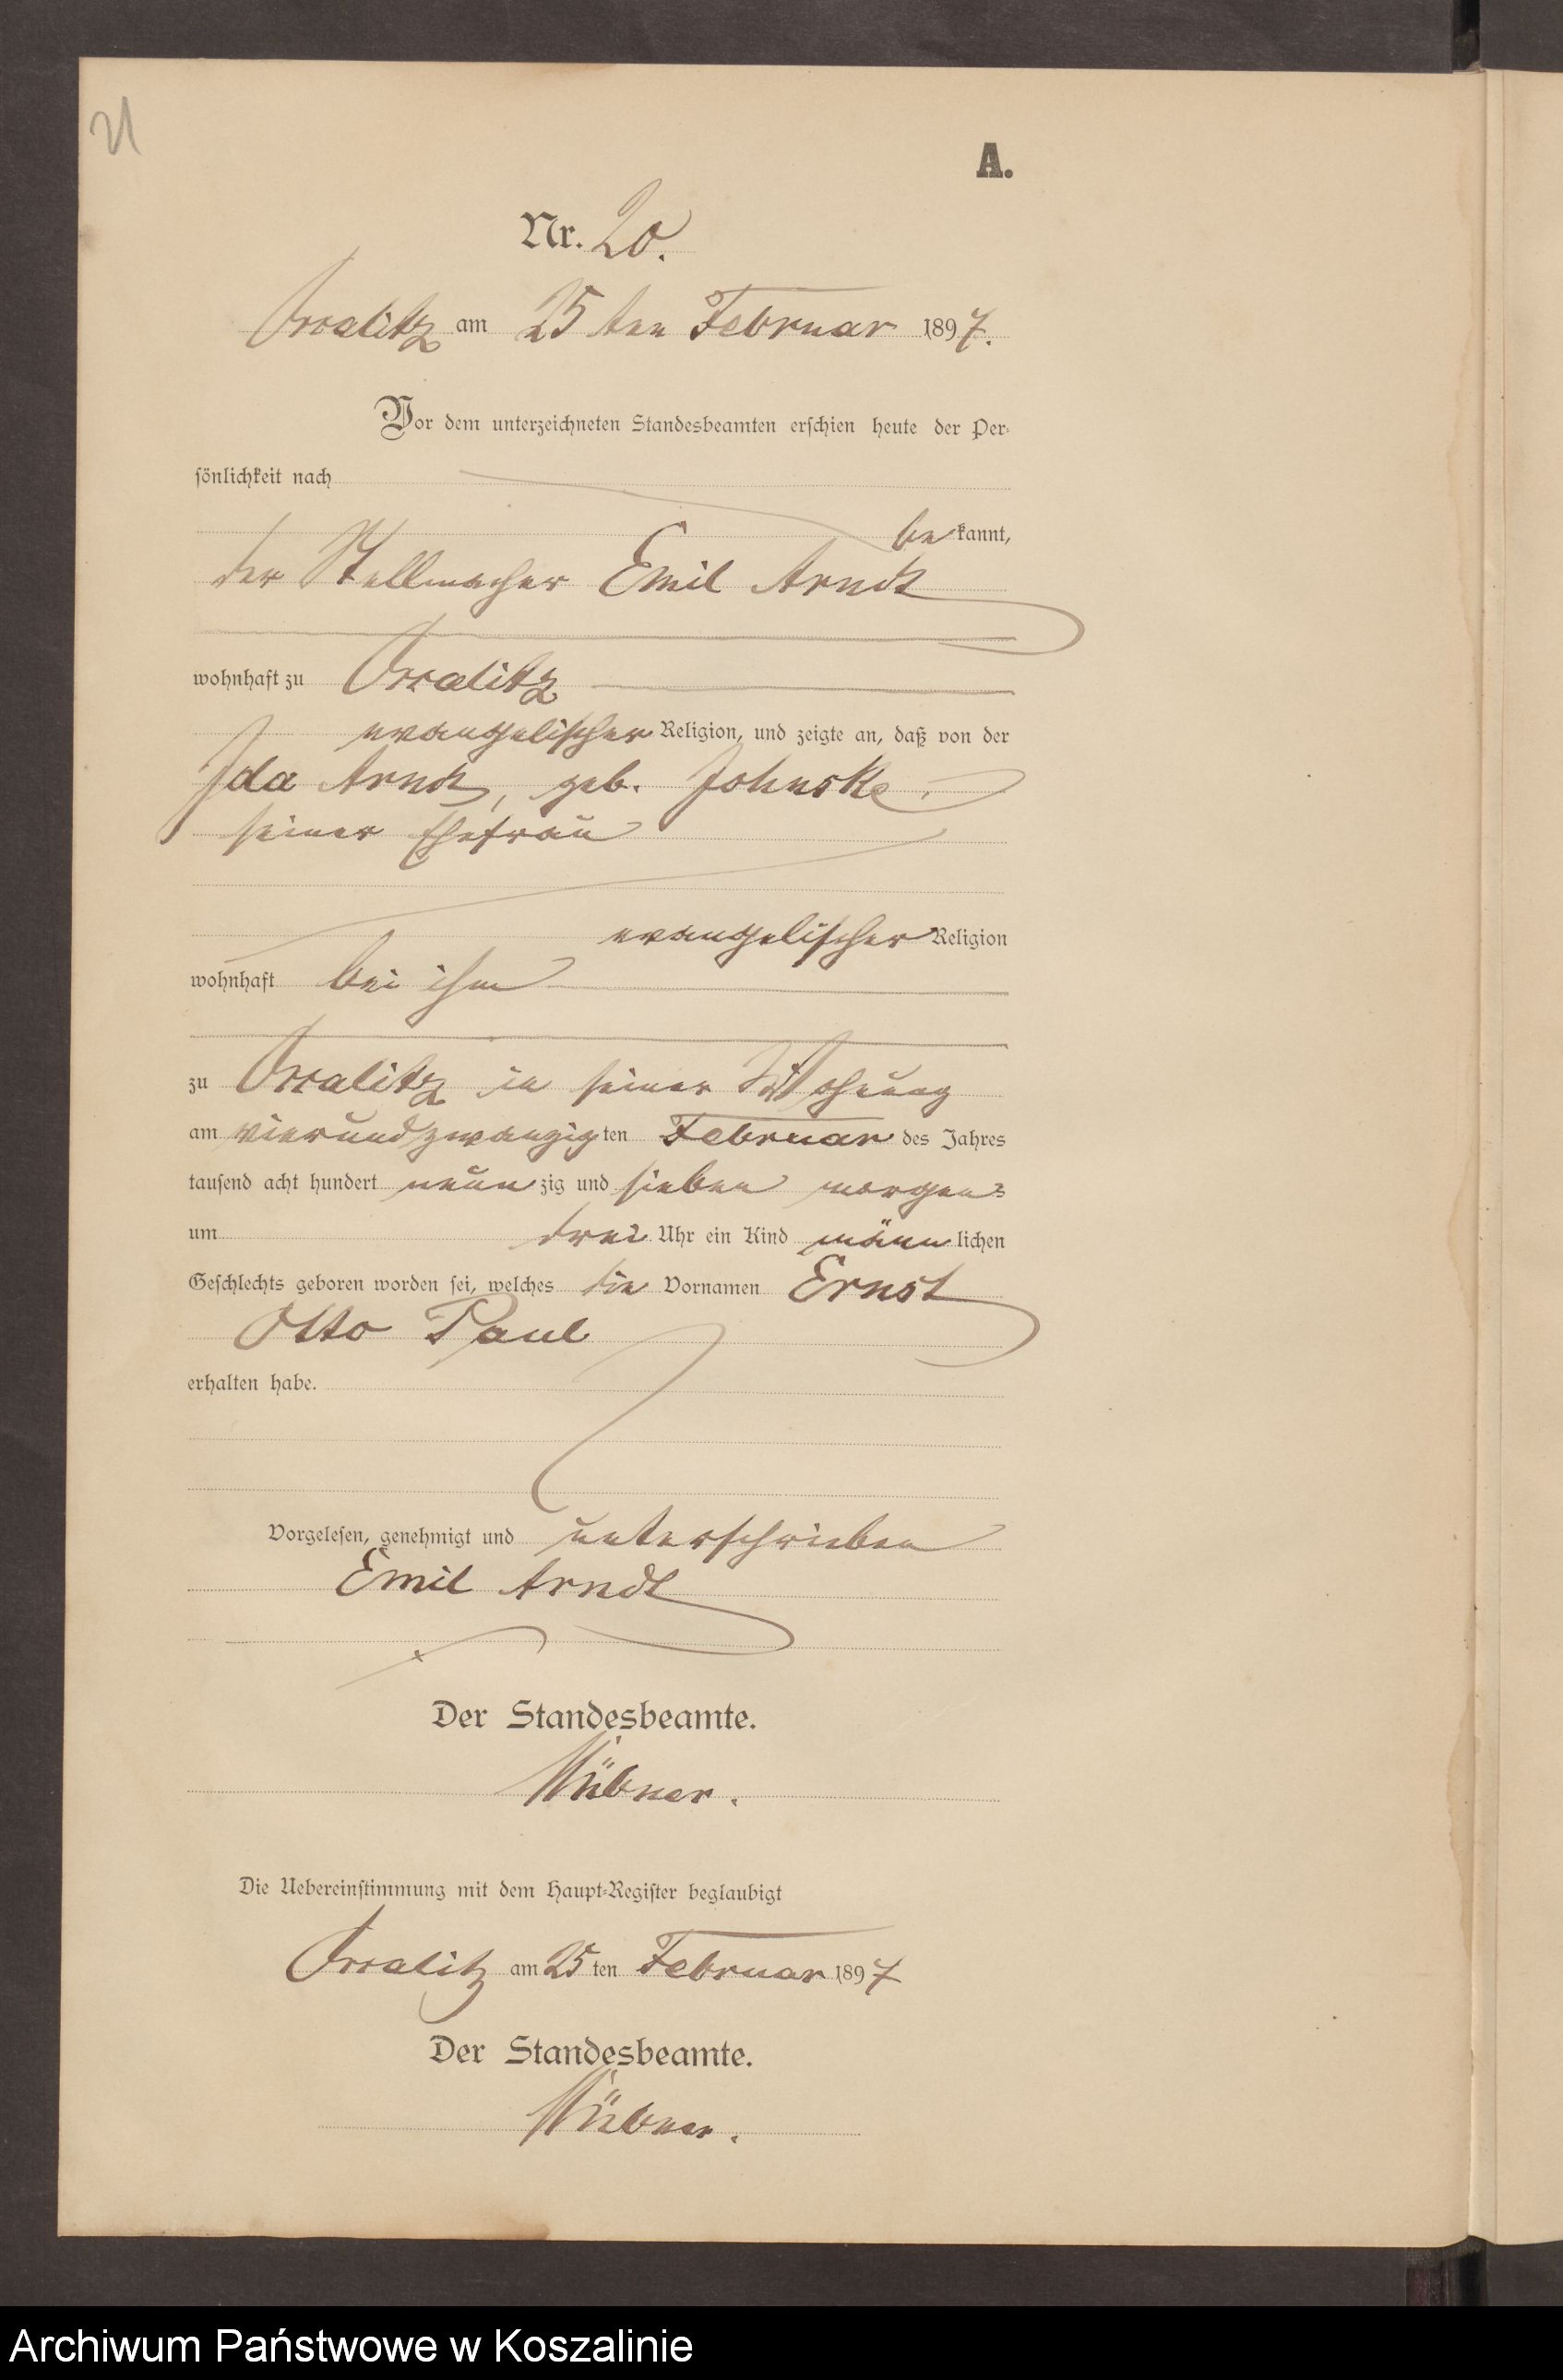 21
A.
Nr. 20.
am 25 ten Februar 1897.
Vor dem unterzeichneten Standesbeamten erschien heute der Per-
sönlichkeit nach
bekannt,
der Stellmacher Emil Arndt
wohnhaft zu
evangelischer Religion, und zeigte an, daß von der
Ida Arndt, geb. Johnske,
seiner Ehefrau
evangelischer Religion
wohnhaft bei ihm
zu in seiner Wohnung
am vierundzwanzigten Februar des Jahres
tausend acht hundert neunzig und sieben morgens
um drei Uhr ein Kind männlichen
Geschlechts geboren worden sei, welches die Vornamen Ernst
Otto Paul
erhalten habe.
Vorgelesen, genehmigt und unterschrieben
Emil Arndt
Der Standesbeamte.
Die Uebereinstimmung mit dem Haupt-Register beglaubigt
am 25 ten Februar 1897
Der Standesbeamte.
Archiwum Państwowe w Koszalinie